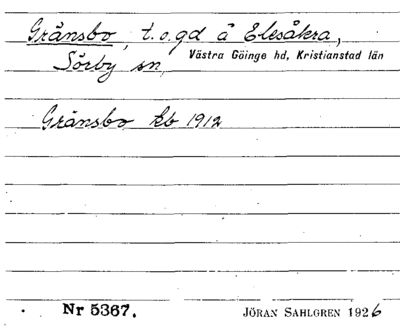 Gränsbo, t.o.gd å Elesåkra,
Sörby sn, Västra Göinge hd, Kristianstad län
Gränsbo kb 1912
Nr 5367. JÖRAN SAHLGREN 1926